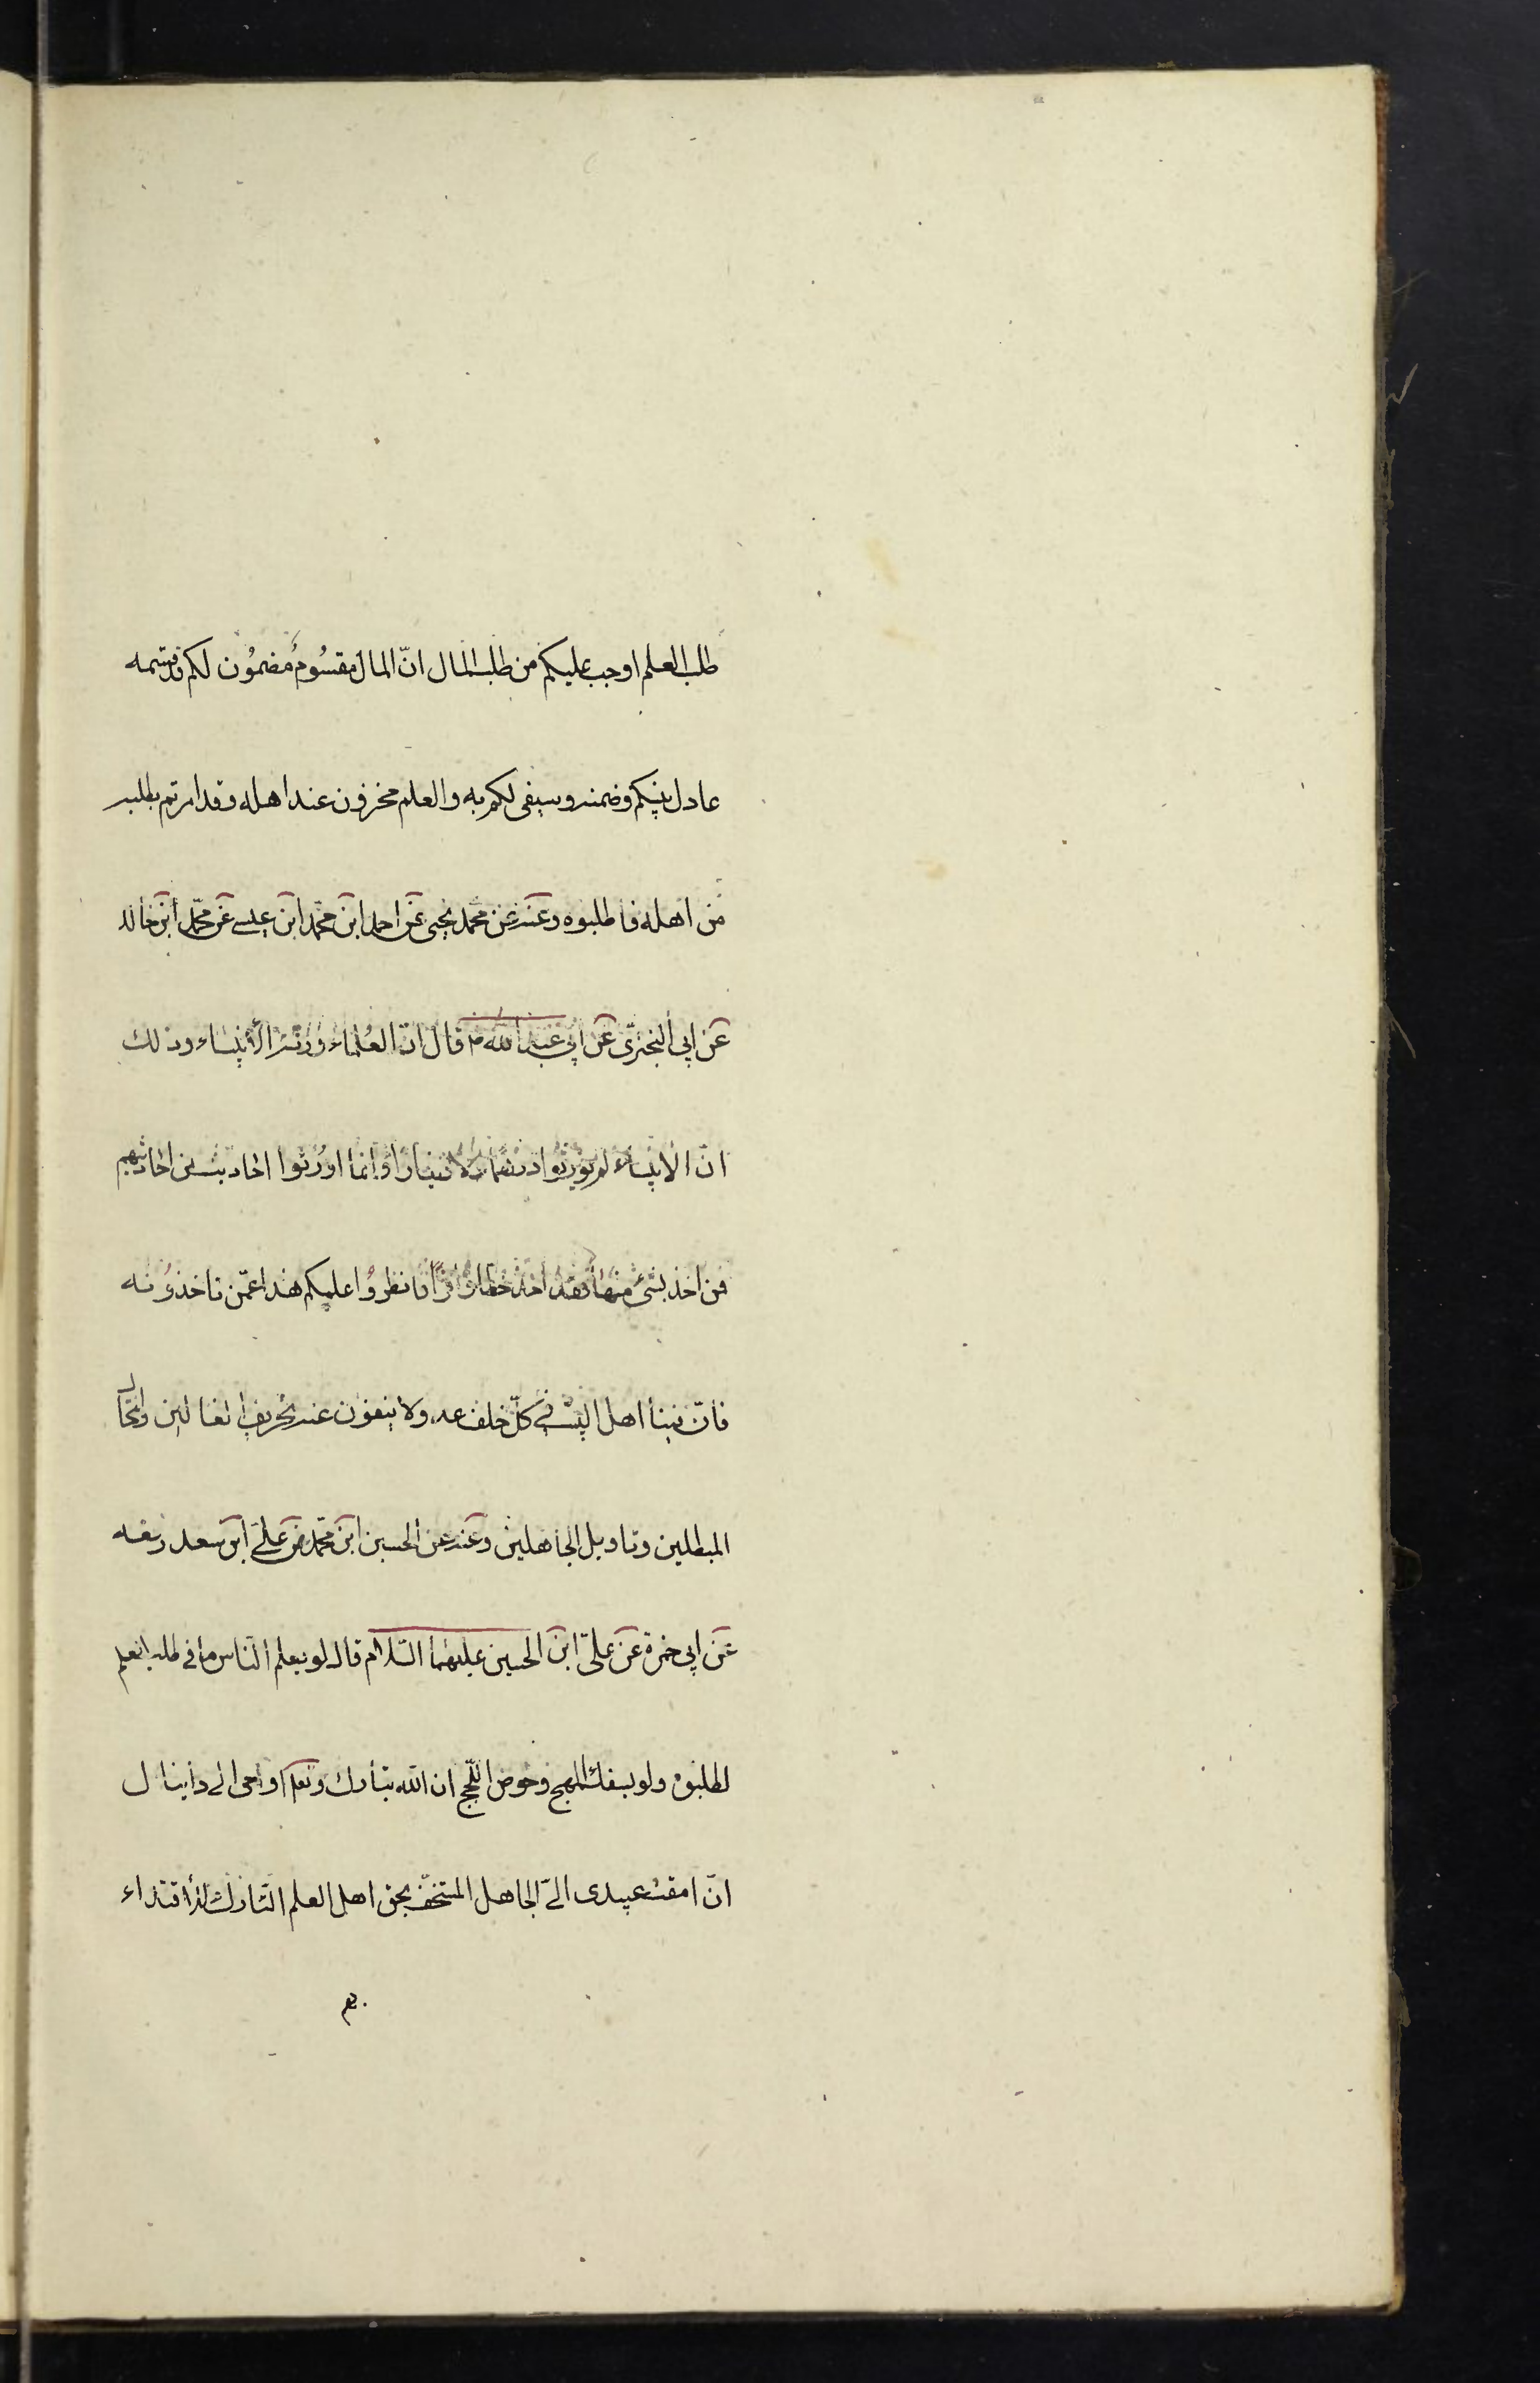 طلب العلم اوجب عليكم من طلب المال انّ المال مقسُومٌ مضمُون لكم قد قسمه
عادل بينكم وضمنه وسيفى لكم به والعلم مخزون عند اهله وقد امرتم بطلبه
من اهله فاطلبوه وعنه عن محمد يحيى عن احمد ابن محمد ابن عيسے عن محمّد ابن خالد
عن ابى البخترىّ عن ابى عبد الله ع قال انّ العُلماء ورثة الأنبياء وذلك
انّ الانبياء لم يورثوا درهما ولا دينارًا وانّما اورثوا احاديث من احاديثهم
فمن اخذ بشئ منها فقد اخذ حظا وافرًا فانظرُوا علمكم هذا عمّن تاخذوُنه
فانّ فينا اهل البيت فى كلّ خلف عدولا ينفون عنه تحريف الغالين وانتحال
المبطلين وتاويل الجاهلين وعنه عن الحسين ابن محمّد عن علے ابن سعد رفعه
عن ابى حمزة عن علىّ ابن الحسين عليهما السّلام قال لو يعلم النّاس ما فى طلب العلم
لطلبوه ولو بسفك المهج وخوض اللّجج ان الله تبارك وتعا اوحى الى دانيال
انّ امقت عبيدى الىّ الجاهل المستخفّ بحق اهل العلم التّارك للاقتداء
بهم